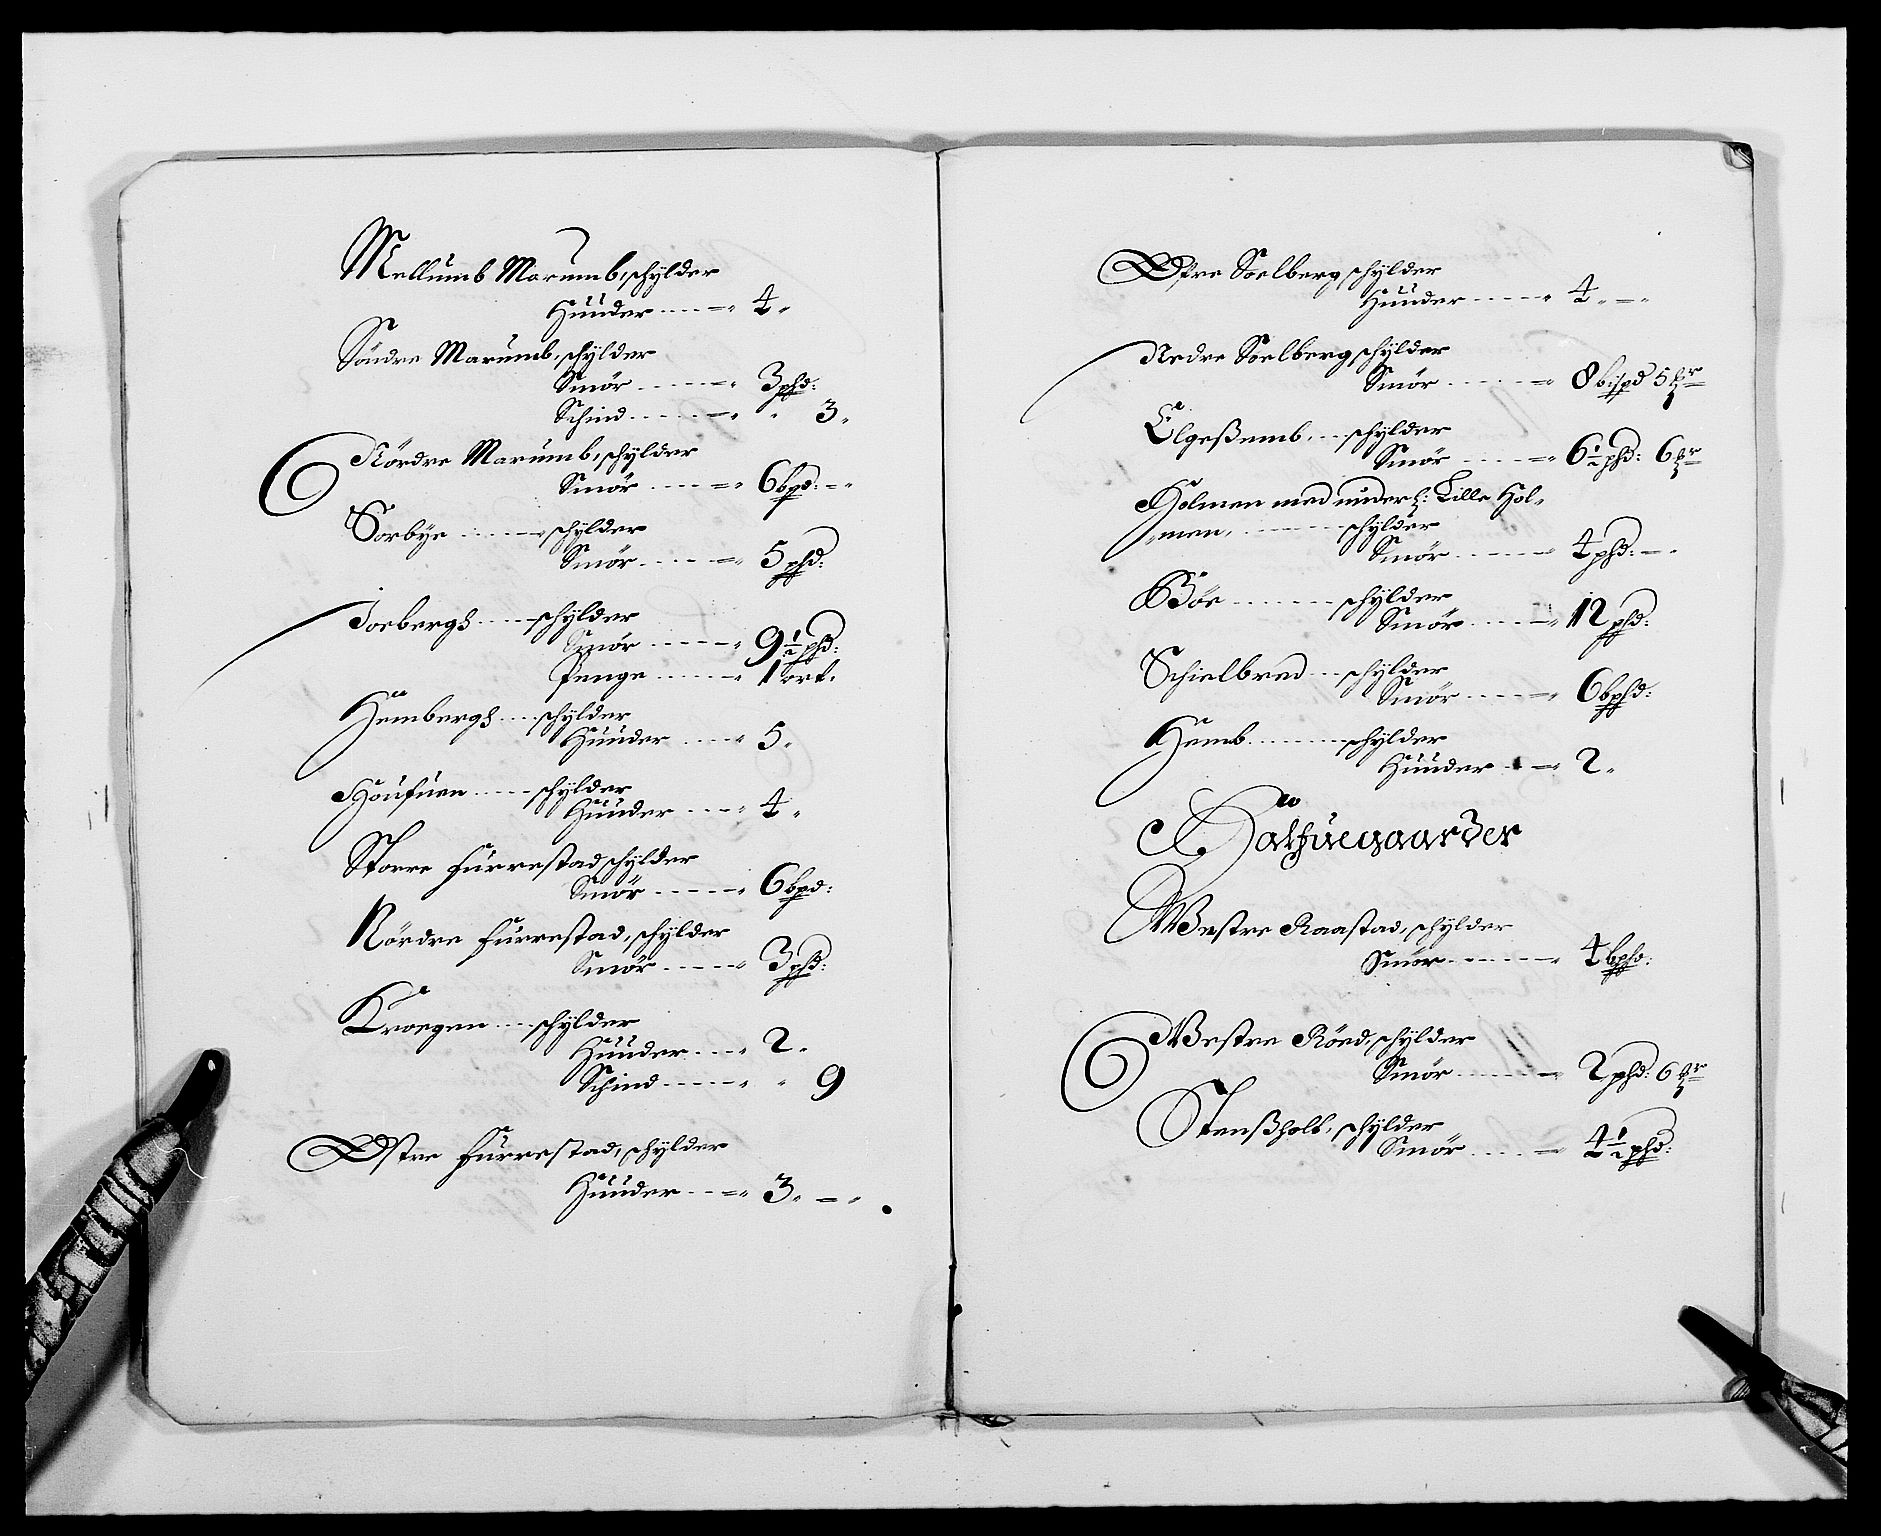 Mellumb Marumb, schÿlder
Huuder ---- 4
Söndre Marumb, schÿlder
Smör ---- 3 phd:
Schind ---- 3
Nördre Marumb, schÿlder
Smör ---- 6 bpd:
Sorbÿe ---- schÿlder
Smör ---- 5 phd:
Joebergh ---- schÿlder
Smör ---- 9 1/2 phd:
Penge ---- 1 ort.
Hembergh ---- schÿlder
Huuder ---- 5
Houfuen ---- schÿlder
Huuder ---- 4
Storre Furrestad, schÿlder
Smör ---- 6 bpd:
Nördre Furrestad, schÿlder
Smör ---- 3 phd:
Kroegen ---- schÿlder
Huuder ---- 2
Schind ---- 9
Østre Furrestad, schÿlder
Huuder ---- 3
Øfre Soelberg schÿlder
Huuder ---- 4
Nedre Soelberg schÿlder
Smör ---- 8 bispd 5 mr
Elgeßemb, ---- schÿlder
Smör ---- 6 1/2 phd: 6 mr
Holmen med underl: Lille Hol-
-men, ---- schÿlder
Smör ---- 4 phd:
Böe ---- schÿlder
Smör ---- 12 phd:
Schielbred ---- schÿlder
Smör ---- 6 bphd:
Hemb ---- schÿlder
Huuder ---- 2
Halfuegaarder
Westre Raastad, schÿlder
Smör ---- 4 bphd:
Westre Röed, schÿlder
Smör ---- 2 phd: 6 mr
Stenßholt, schÿlder
Smör ---- 4 1/2 phd: